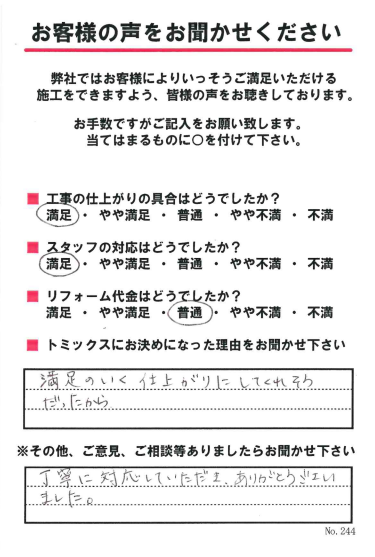 お客様の声をお聞かせください
弊社ではお客様によりいっそうご満足いただける
施工をできますよう、皆様の声をお聴きしております。
お手数ですがご記入をお願い致します。
当てはまるものに〇を付けて下さい。
■ 工事の仕上がりの具合はどうでしたか？
満足 ・ やや満足 ・ 普通 ・ やや不満 ・ 不満
■ スタッフの対応はどうでしたか？
満足 ・ やや満足 ・ 普通 ・ やや不満 ・ 不満
■ リフォーム代金はどうでしたか？
満足 ・ やや満足 ・ 普通 ・ やや不満 ・ 不満
■ トミックスにお決めになった理由をお聞かせ下さい
満足のいく仕上がりにしてくれそう
だったから
※その他、ご意見、ご相談等ありましたらお聞かせ下さい
丁寧に対応していただき、ありがとうございい
ました。
No. 244